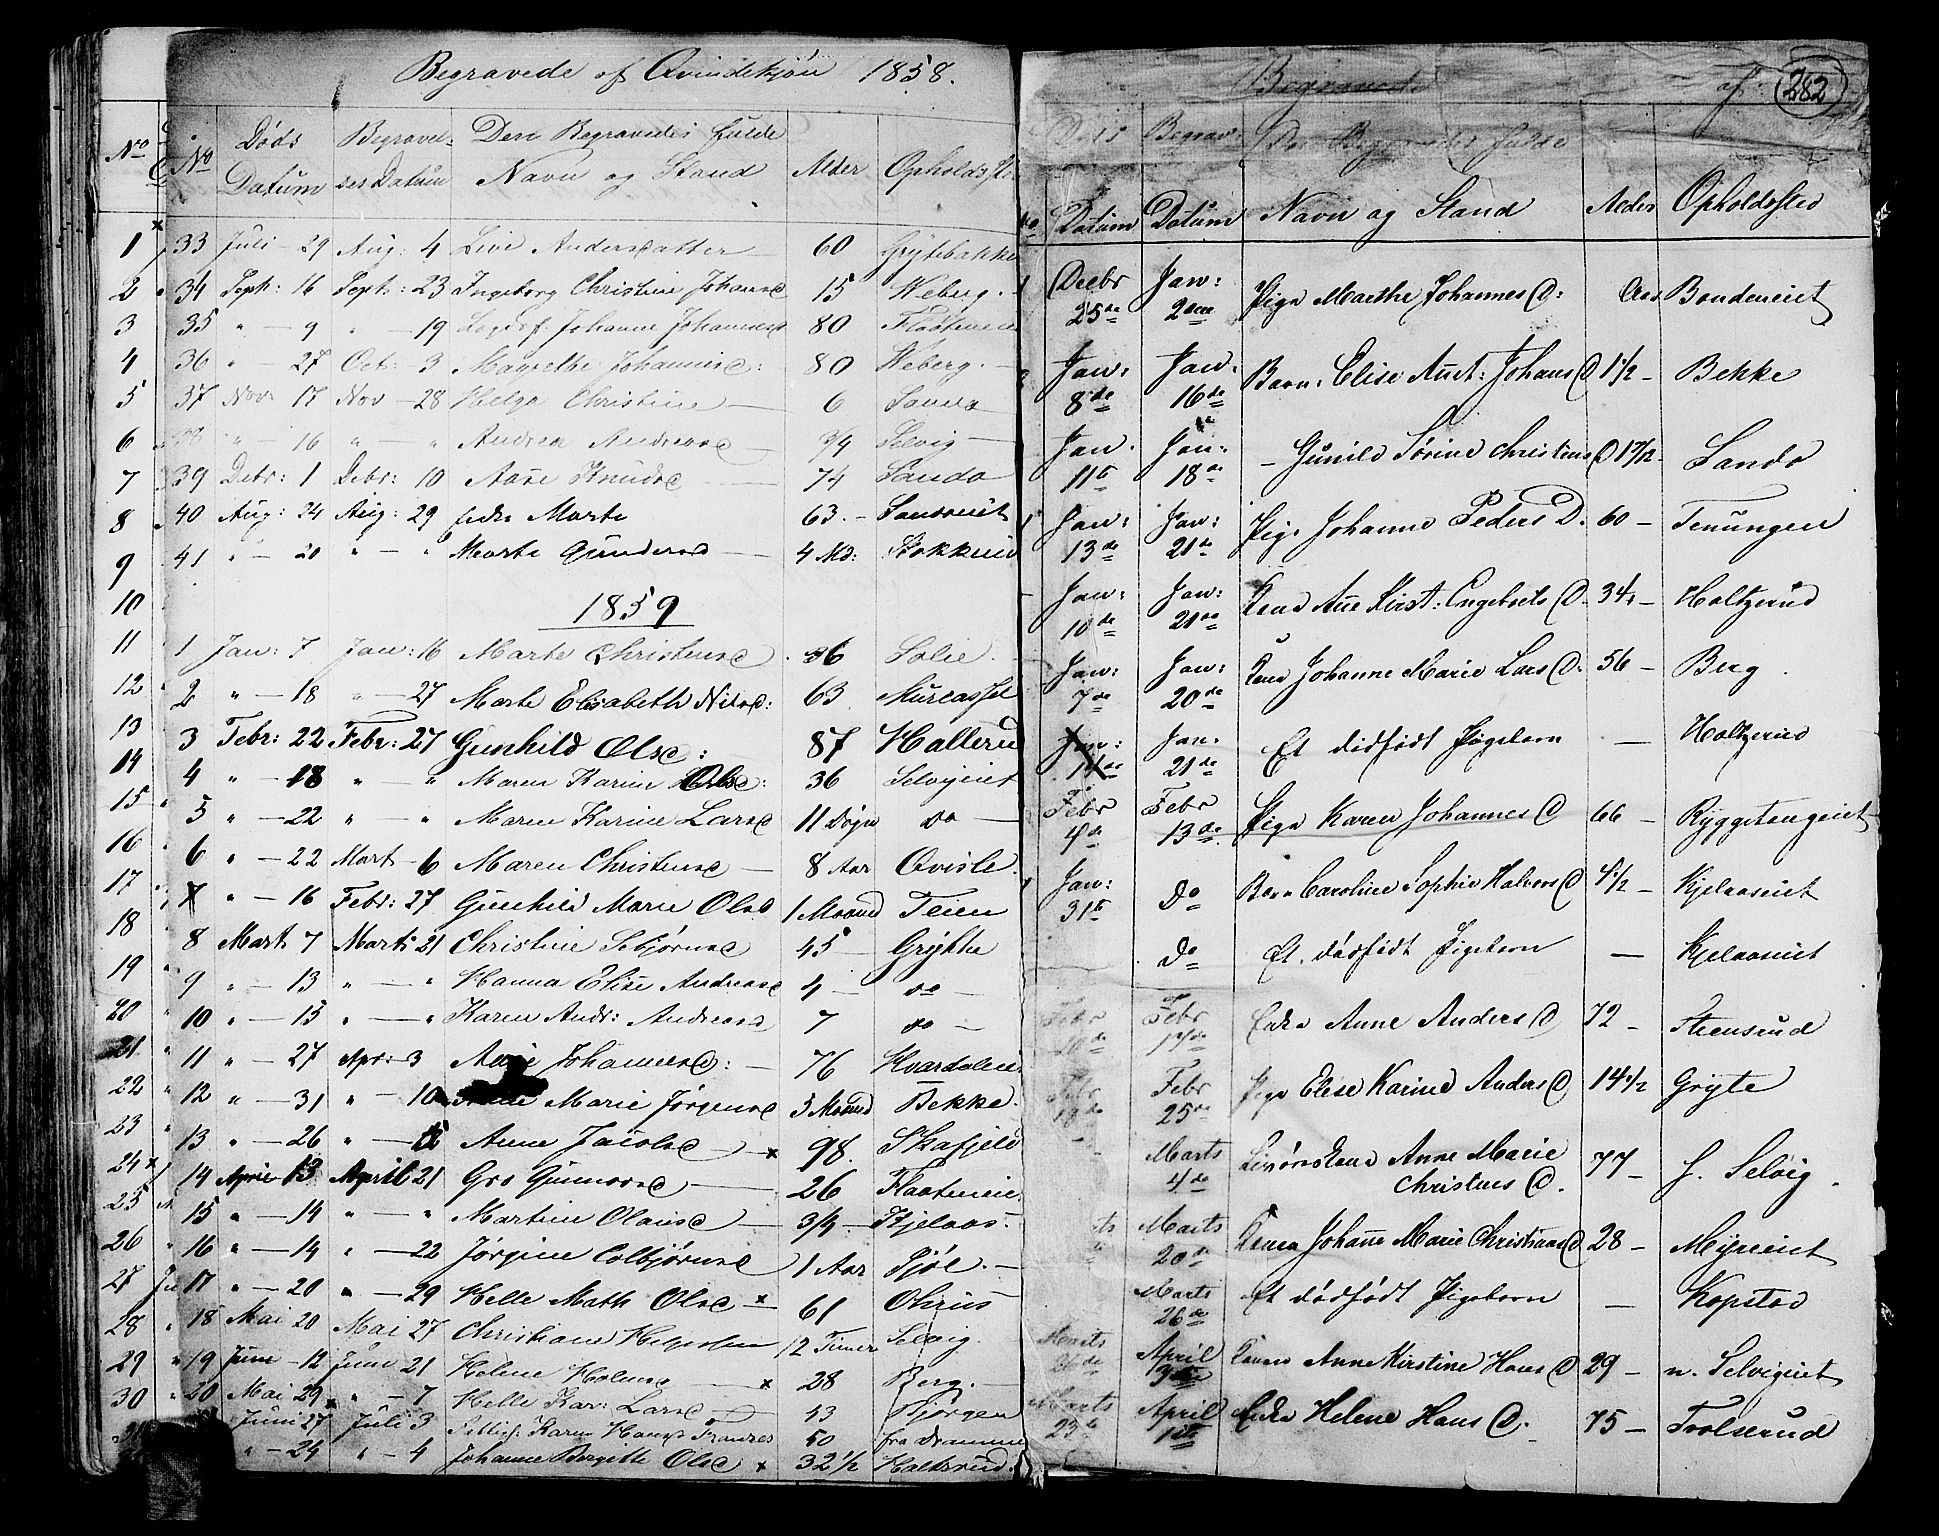 Begravede af Qvindekjøn 1858.
No Døds Datum Begravel- ses Datum Den Begravedes fulde Navn og Stand Alder Opholds
33 Juli 29 Aug: 4 Live Andersdatter 60 Grytebakke
34 Sept: 16 Sept: 23 Ingeborg Christine Johansd 15 Weberg.
35 " 9 " 19 Johanne Johannesd 80
36 " 27 Oct: 3 Magrethe Johannesd: 80 Weberg.
37 Nov: 17 Nov 28 Helga Christine 6 Sanda
38 " 16 " " Andrea Andreasd 3/4 Selvig
39 Debr: 1 Debr: 10 Aase Knudsd 74 Sanda
40 Aug: 24 Aug: 29 Enke Marte 63. Sandseiet
41 " 20 " " Marte Gundersd 4 Md:
1859
1 Jan: 7 Jan: 16 Marte Christensd 36 Solie.
2 " 18 " 27 Marte Elisabeth Nilsd: 63
3 Febr: 22 Febr: 27 Gunhild Olsd: 87 Holleru
4 " 18 " " Maren Karine Olsd: 36 Selvigeiet
5 " 22 " " Maren Karine Larsd 11 Døgn do
6 " 22 Mart 6 Maren Christensd 8 Aar Qvisle.
7 " 16 Febr: 27 Gunhild Marie Olsd 1 Maaned Teien
8 Mart 7 Marts 21 Christine Sebjørnsd 45 Grytte
9 " 13 " " Hanna Elise Andreasd 4 do
10 " 15 " " Karen Andr: Andreasd 7 do
11 " 27 Apr: 3 Johannesd: 76
12 " 31 " 10 Marie Jørgensd 5 Maaned Bekke.
13 " 26 " Anne Jacobsd x 98. Skafjeld
14 April 13 April 21 Gro Gunnarsd 26
15 " 14 " " Martine Olausd 3/4 Kjelaas.
16 " 14 " 22 Jørgine Colbjørnsd 1 Aar
17 " 20 " 29 Helle Math Olsd x 61
18 Mai 20 Mai 27 Christiane 12 Timer Selvig.
19 Juni 12 Juni 21 Helene x 28 Berg.
20 Mai 29 x " 7 Helle Kar: Larsd 43 Bjørgen
Juni 27 Juli 3 Karen 50 fra Dramme
" 24 " 4 Johanne Birgitte Olsd x 32 1/2 Holtsrud.
Begravede af 282
Døds Datum Begrav: Datum Den Begravedes fulde Navn og Stand Alder Opholdsted
Decbr 25de Jan: 2den Pige Marthe Johannes D: Bondeeiet
Jan: 8de Jan: 16de Barn: Elise Anet: Johans D 1 1/2 Bekke
Jan. 11te Jan: 18de Gunild Sørine Christens D Sando
Jan: 13de Jan: 21de Pige Johanne Peders D. 60 Tenungen
Jan: 10de Jan: 21de Kone Ane Kirst: Engebrets D. 34 Holtzerud
Jan: 7de Jan: 20de Kone Johanne Marie Lars D: 56 Berg.
Jan: 14de Jan: 21de Et dødfødt Pigebarn Holtzerud
Febr 4de Febr 13de Pige Karen Johannes D 66 Ryggetangeiet
Jan: 31te Do Barn Caroline Sophie Halvors D 4 1/2 Kjelaaseiet
Do Et dødfødt Pigebarn Kjelaaseiet
Febr Febr 17de Enke Anne Anders D 72 Steensrud
Febr Febr 25de Pige Elise Karine Anders D 14 1/2 Gryte
Marts 4de Anne Marie Christens D. 77 Selvig.
Marts 20de Kone Johanne Marie Christians D 28 Myreeiet
Marts 26de Et dødfødt Pigebarn Kopstad
Marts 26de April 3die Kone Anne Kirstine Hans D 29 n. Selvigeiet
Marts 23de April 1ste Enke Helene Hans D. 75 Trolserud